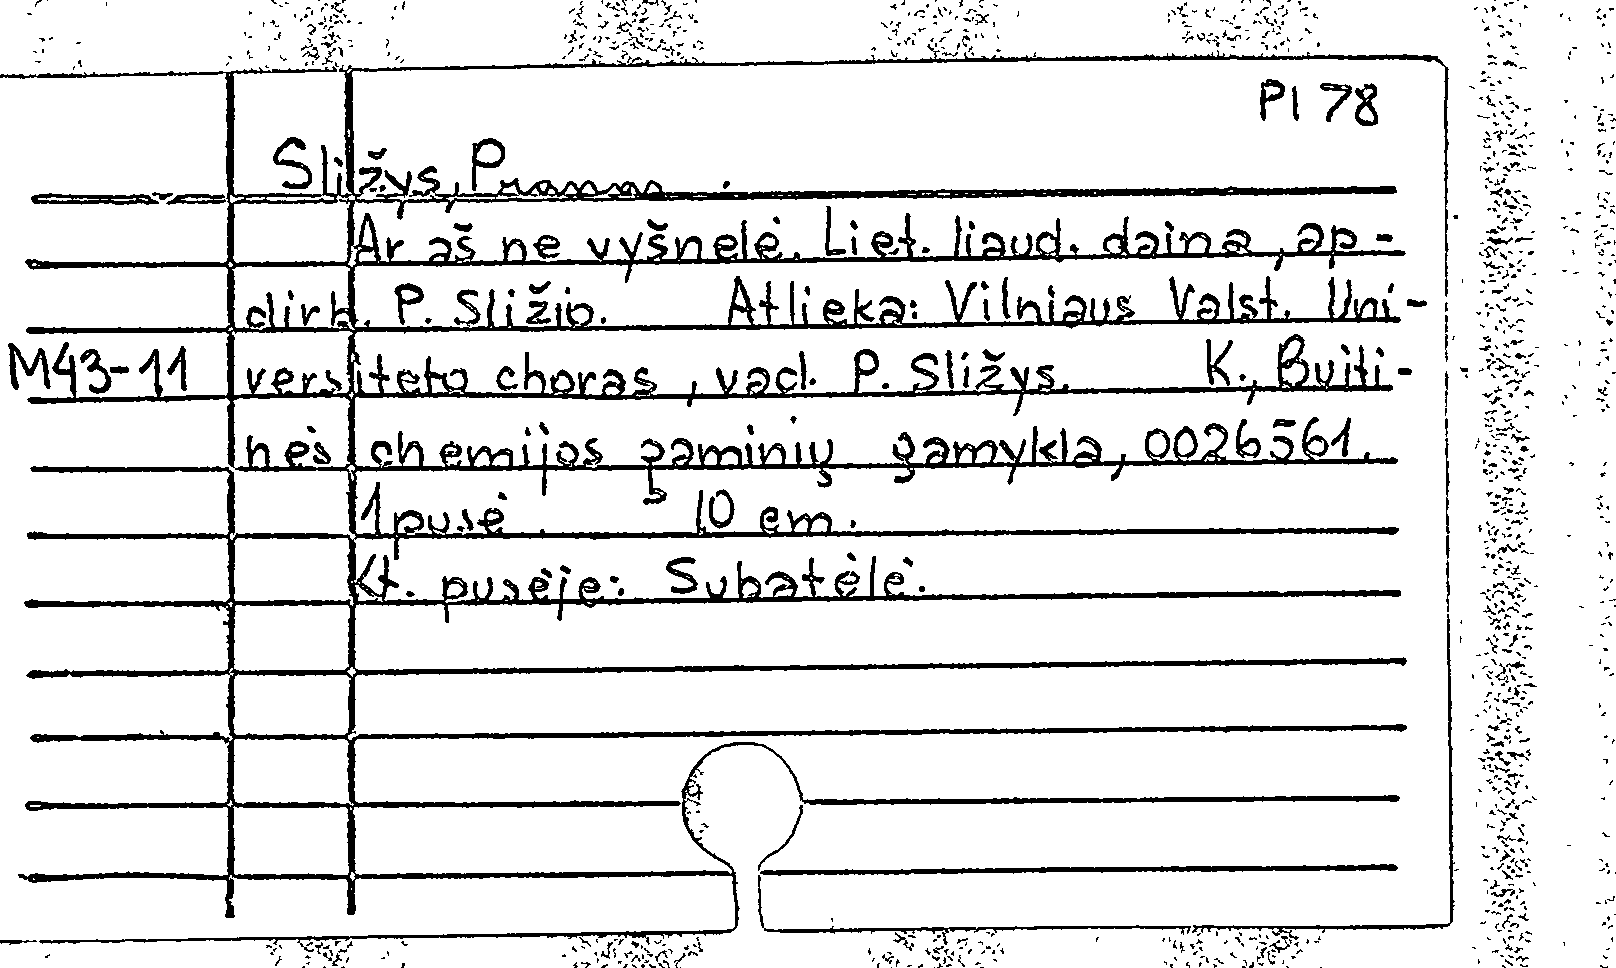 Pl 78
Sližys, Pranas.
Ar aš ne vyšnelė. Liet. liaud. daina, ap-
dirb. P. Sližio. Atlieka: Vilniaus Valst. Uni-
M43-11 versiteto choras, vad. P. Sližys. K., Buiti-
nės chemijos gaminių gamykla, 0026561.
1 pusė. 10 cm.
Kt. pusėje: Subatėlė.